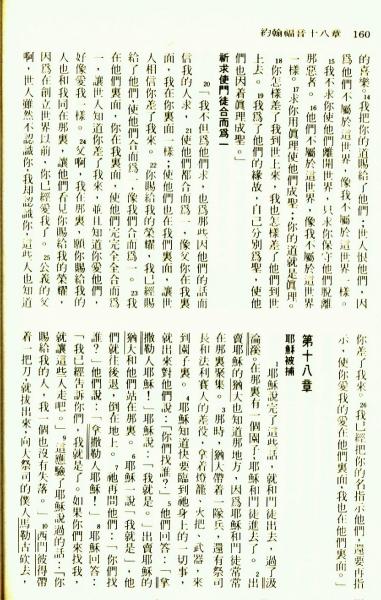 約翰福音十八章 160
的喜樂。14我把你的道賜給他們;世人恨他們,因
為他們不屬於這世界,像我不屬於這世界一樣。
15我不求你使他們離開世界,只求你保守他們脫離
那惡者。16他們不屬於這世界,像我不屬於這世界
一樣。17求你用真理使他們成聖;你的道就是真理。
18你怎樣差了我到世上來,我也怎樣差了他們到世
上去。19我為了他們的緣故,自己分別為聖,使他
們也因着真理成聖。」
祈求使門徒合而為一
20「我不但為他們求,也為那些因他們的話而
信我的人求,21使他們都合而為一,像父你在我裏
面,我在你裏面一樣;使他們也在我們裏面,讓世
人相信你差了我來。22你賜給我的榮耀,我已經賜
給了他們,使他們合而為一,像我們合而為一。23我
在他們裏面,你在我裏面,使他們完完全全合而為
一,讓世人知道你差了我來,並且知道你愛他們,
好像愛我一樣。24父啊,我在那裏,願你賜給我的
人也和我同在那裏,讓他們看見你賜給我的榮耀,
因為在創立世界以前,你已經愛我了。25公義的父
啊,世人雖然不認識你,我却認識你,這些人也知道
你差了我來。26我已經把你的名指示他們,還要再指
示,使你愛我的愛在他們裏面,我也在他們裏面。」
第十八章
耶穌被捕
1耶穌說完了這些話,就和門徒出去,過了汲
淪溪。在那裏有一個園子,耶穌和門徒進去了。2出
賣耶穌的猶大也知道那地方,因為耶穌和門徒常常
在那裏聚集。3那時,猶大帶着一隊兵,還有祭司
長和法利賽人的差役,拿着燈籠、火把、武器,來
到園子裏。4耶穌知道快要臨到祂身上的一切事,
就出來對他們說:「你們找誰?」5他們回答:「拿
撒勒人耶穌!」耶穌說:「我就是。」出賣耶穌的
猶大和他們站在那裏。6耶穌一說「我就是」,他
們就往後退,倒在地上。7祂再問他們:「你們找
誰?」他們說:「拿撒勒人耶穌!」8耶穌回答:
「我已經告訴你們,我就是了。如果你們來找我,
就讓這些人走吧。」9這應驗了耶穌說過的話:「你
賜給我的人,我一個也沒有失落。」10西門彼得帶
着一把刀,就拔出來,向大祭司的僕人馬勒古砍去,